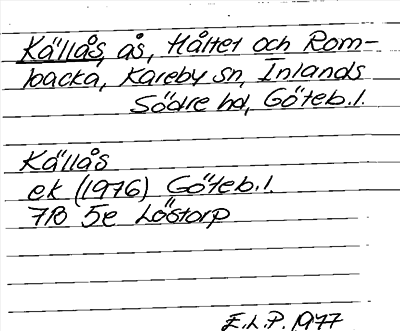 Källås, ås, Håltet och Rom-
backa, Kareby sn, Inlands
Södre hd, Göteb.l.
Källås
ek (1976) Göteb.l.
7B 5e Löstorp
E.L.P. 1977